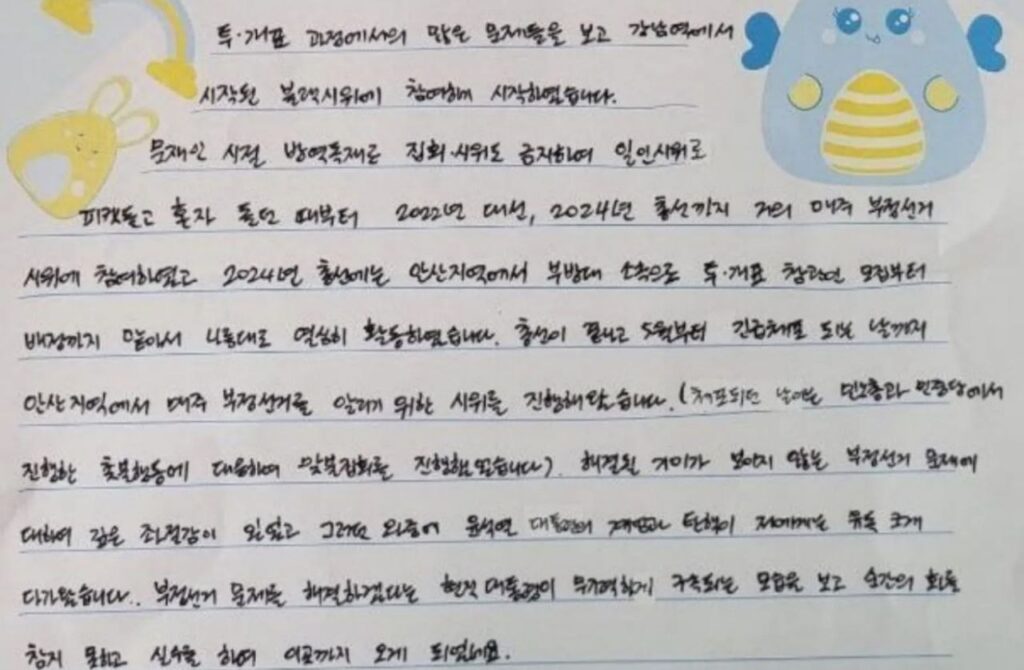 투·개표 과정에서의 많은 문제들을 보고 강남역에서
시작된 블랙시위에 참여하며 시작하였습니다.
문재인 시절 방역독재로 집회·시위도 금지하여 일인시위로
피켓들고 혼자 돌던 때부터 2022년 대선, 2024년 총선까지 거의 매주 부정선거
시위에 참여하였고 2024년 총선에는 안산지역에서 부방대 소속으로 투·개표 참관인 모집부터
배정까지 맡아서 나름대로 열심히 활동하였습니다. 총선이 끝나고 5월부터 긴급체포 되는 날까지
안산지역에서 매주 부정선거를 알리기 위한 시위를 진행해왔습니다. (체포되던 날에는 민노총과 민중당에서
진행한 촛불행동에 대응하여 맞불집회를 진행했었습니다). 해결될 기미가 보이지 않는 부정선거 문제에
대하여 깊은 좌절감이 있었고 그러던 와중에 윤석열 대통령의 계엄과 탄핵이 저에게는 유독 크게
다가왔습니다.. 부정선거 문제를 해결하겠다는 현직대통령이 무기력하게 구속되는 모습을 보고 순간의 화를
참지 못하고 실수를 하여 이곳까지 오게 되었네요.